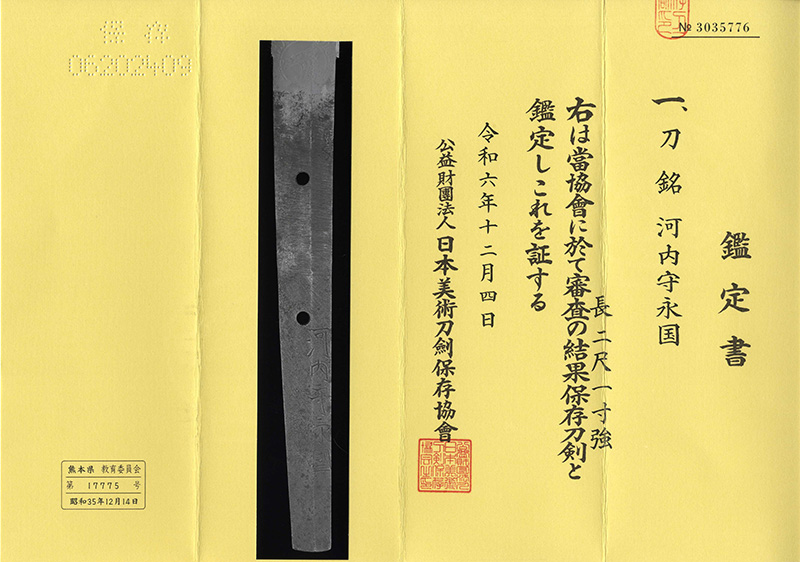 № 3035776
鑑定書
一、刀 銘 河内守永国
長二尺一寸強
右は當協會に於て審査の結果保存刀剣と
鑑定しこれを証する
令和六年十二月四日
公益財團法人 日本美術刀劍保存協會
保存
06202409
熊本県 教育委員会
第 17775 号
昭和35年12月14日